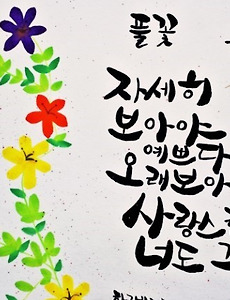 풀꽃
자세히
보아야
예쁘다
오래보아
사랑스
너도 그